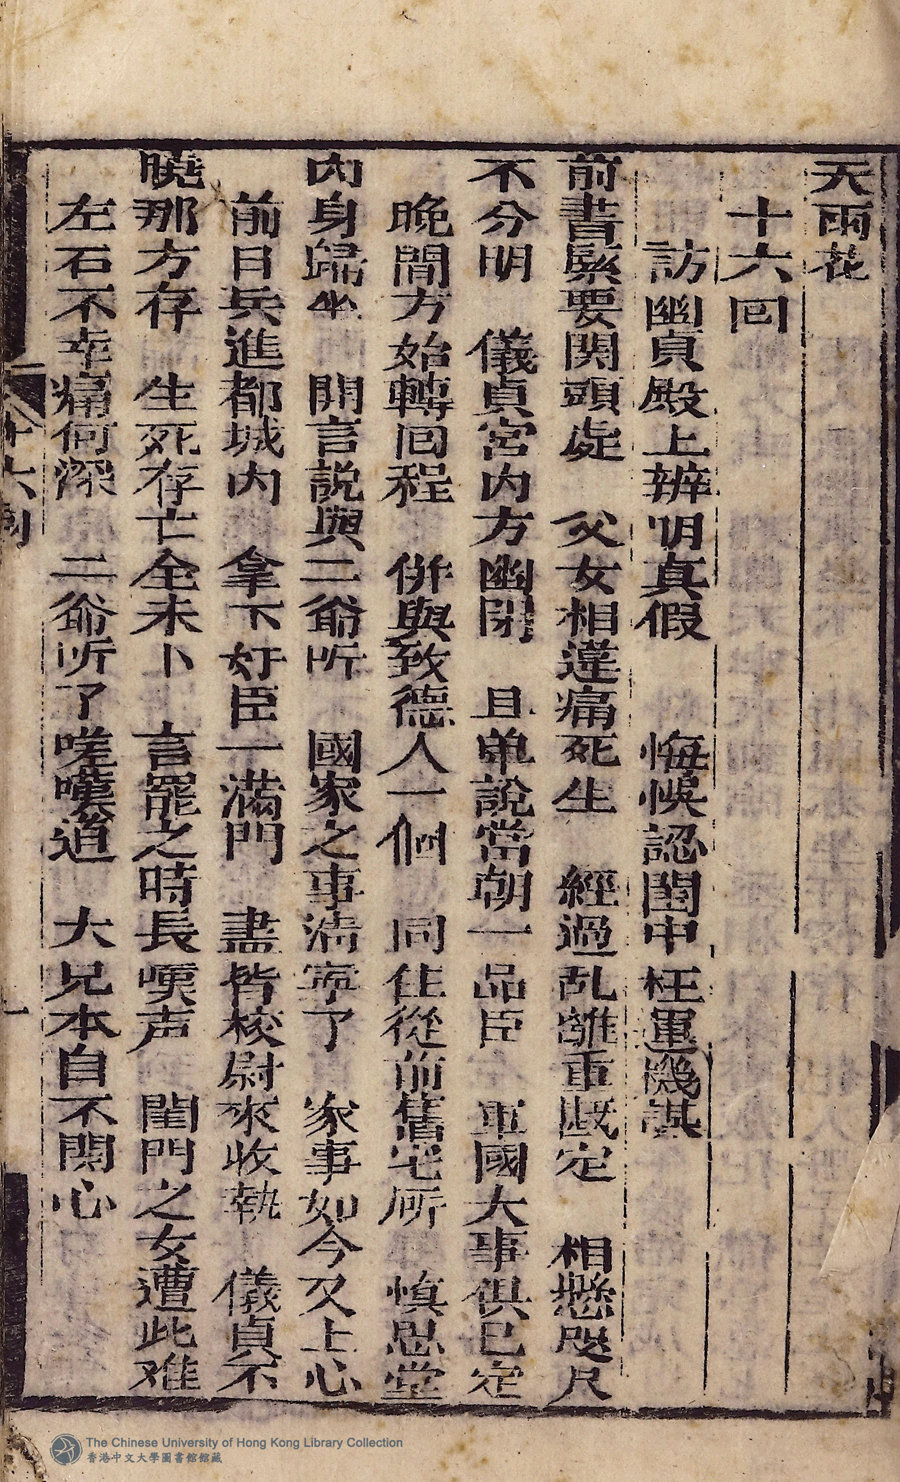 天雨花
十六回
訪幽貞殿上辨明真假　悔悮認閨中枉運機謀
前書緊要関頭處　父女相逢痛死生　經過乱離重戡定　相懸咫尺
不分明　儀貞宮内方幽閉　且单說當朝一品臣　軍國大事俱已定
晚間方始轉回程　併與致德人一個　同住從前舊宅所　慎思堂
内身歸坐　開言說與二爺听　國家之事清寧了　家事如今又上心
前日兵進都城内　拿下奸臣一滿門　盡皆校尉來收執　儀貞不
曉那方存　生死存亡全未卜　言罷之時長嘆声　閨門之女遭此难
左右不幸痛何深　二爺听了嗟嘆道　大兄本自不関心
十六回
一
The Chinese University of Hong Kong Library Collection
香港中文大學圖書館館藏